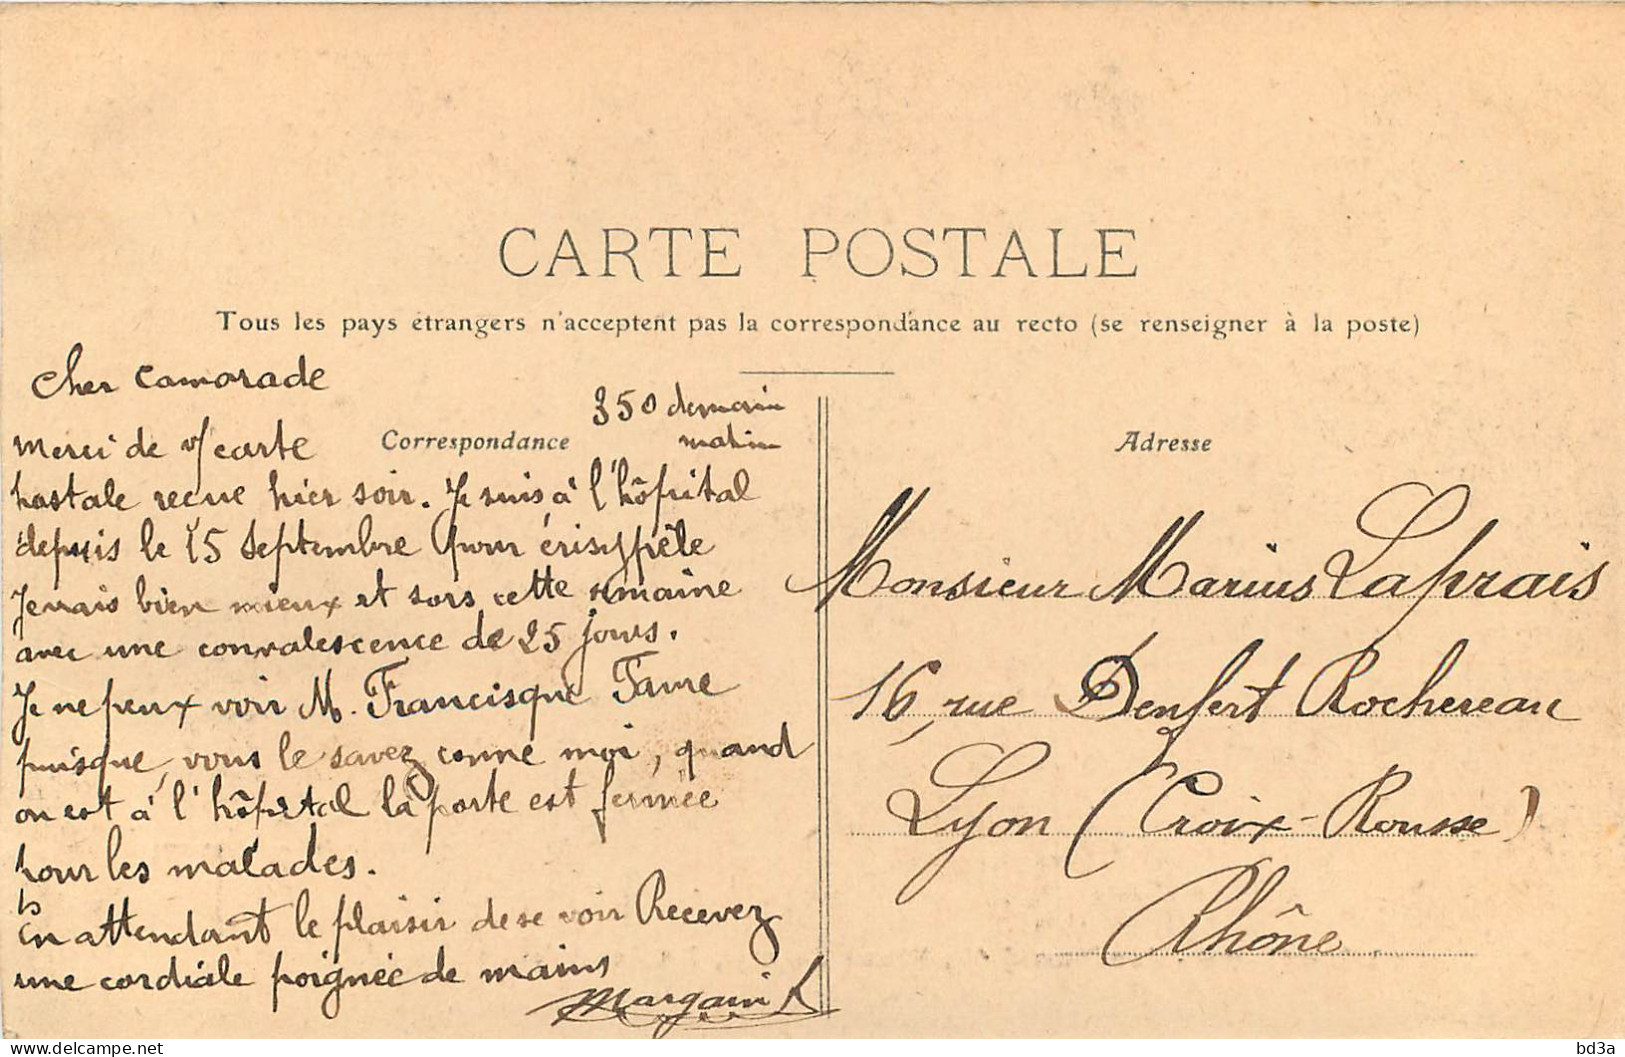 CARTE POSTALE
Tous les pays étrangers n'acceptent pas la correspondance au recto (se renseigner à la poste)
Cher Camarade
350 demain
matin
Correspondance
Adresse
Merci de v/ carte
postale reçue hier soir. Je suis à l'hôpital
depuis le 15 Septembre pour érisypèle
Je vais bien mieux et sors cette semaine
avec une convalescence de 25 jours.
Je ne peux voir M. Francisque Favre
puisque, vous le savez comme moi, quand
on est à l'hôpital la porte est fermée
pour les malades.
En attendant le plaisir de se voir Recevez
une cordiale poignée de mains
Margain
Monsieur Marius Laprais
16, rue Denfert Rochereau
Lyon (Croix-Rousse)
Rhône
bd3a